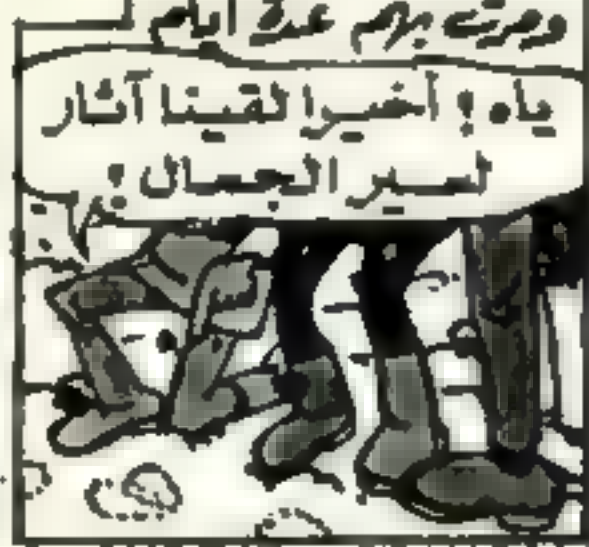 ومرت بهم عدة أيام
ياه ! أخيرا لقينا آثار
لسير الجمال !